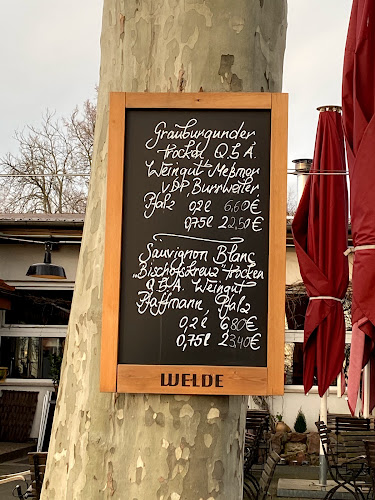 Grauburgunder
trocken Q.b.A.
Weingut Meßmer
VDP Burrweiler
Pfalz 0,2l 6,60€
0,75l 22,50€
Sauvignon Blanc
„Bischofskreuz trocken
Q.b.A. Weingut
Pfaffmann, Pfalz
0,2l 6,80€
0,75l 23,40€
WELDE